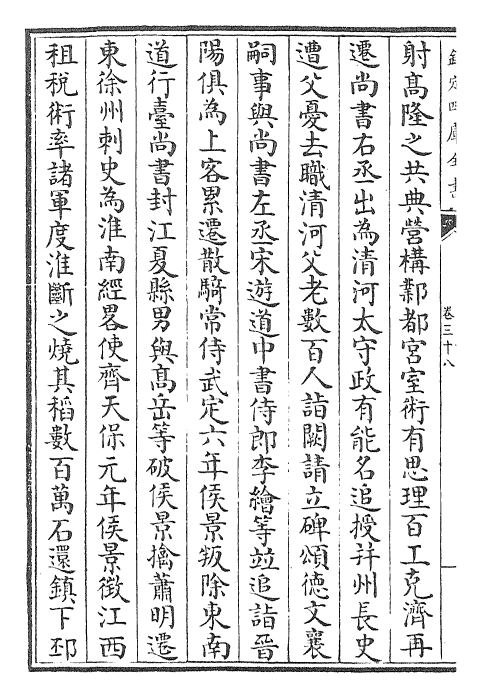 欽定四庫全書
卷三十八
射髙隆之共典營構鄴都宮室術有思理百工克濟再
遷尚書右丞出為清河太守政有能名追授并州長史
遭父憂去職清河父老數百人詣闕請立碑頌徳文襄
嗣事與尚書左丞宋遊道中書侍郎李繪等並追詣晉
陽俱為上客累遷散騎常侍武定六年侯景叛除東南
道行臺尚書封江夏縣男與髙岳等破侯景擒蕭明遷
東徐州刺史為淮南經畧使齊天保元年侯景徵江西
租稅術率諸軍度淮斷之燒其稻數百萬石還鎮下邳